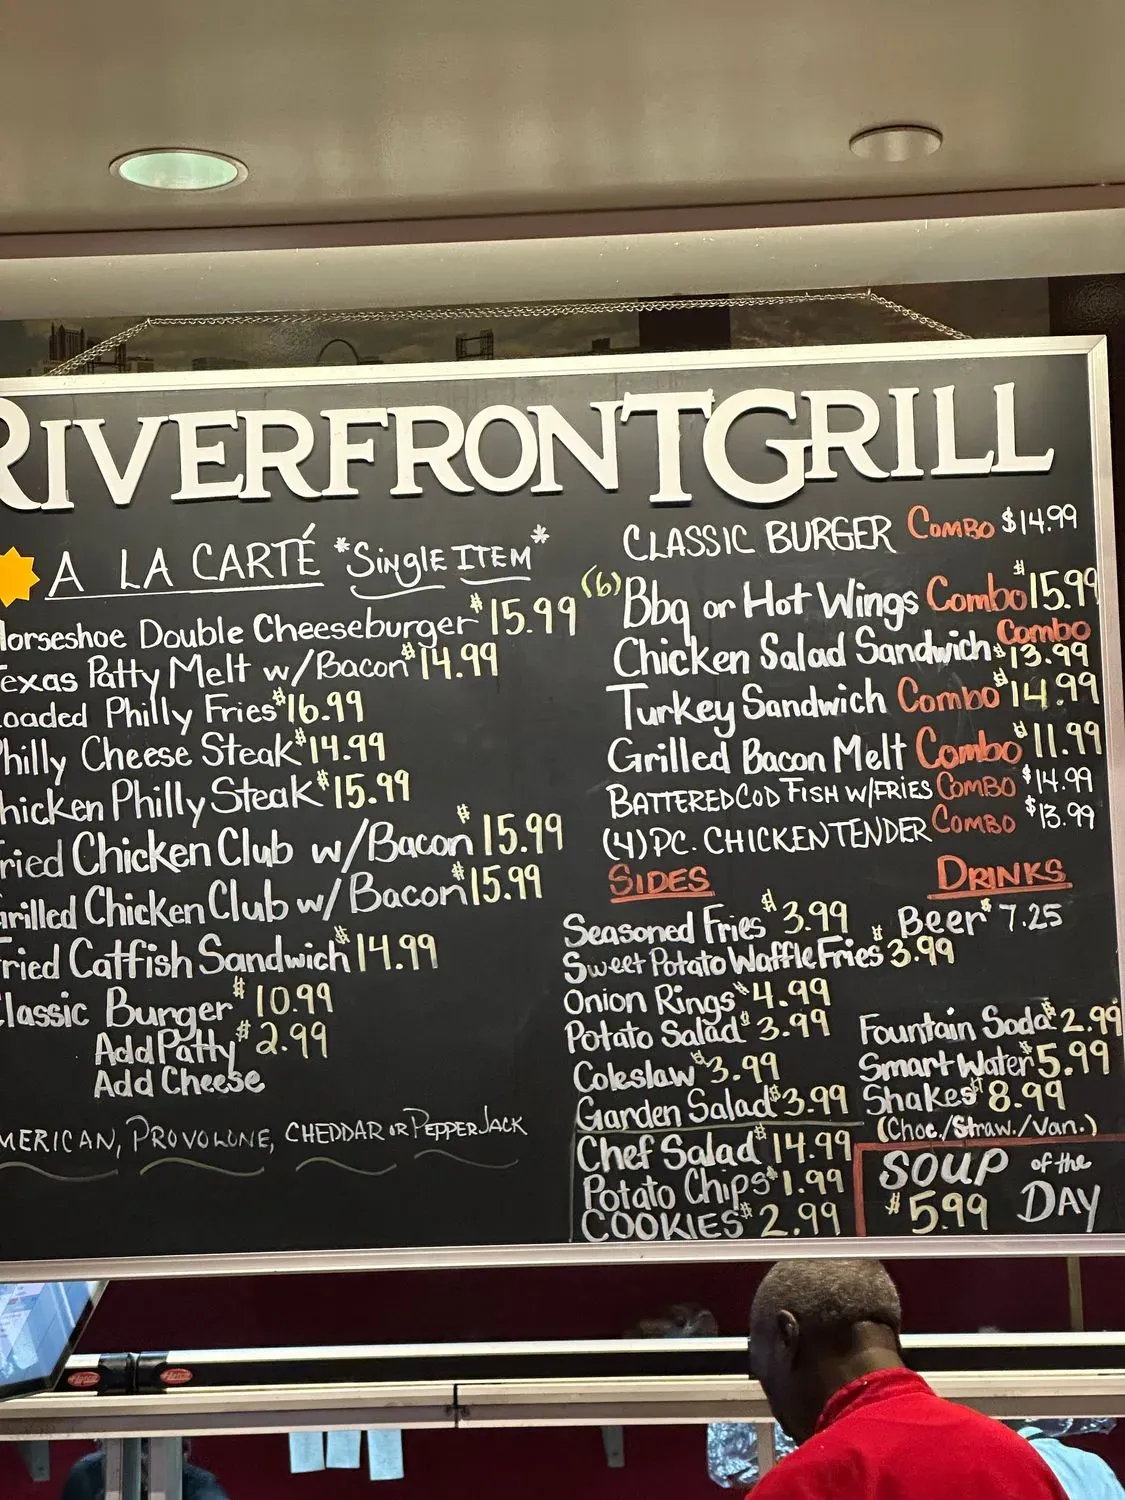 RIVERFRONT GRILL
A LA CARTÉ *Single ITEM*
orseshoe Double Cheeseburger $15.99
exas Patty Melt w/Bacon $14.99
oaded Philly Fries $16.99
hilly Cheese Steak $14.99
hicken Philly Steak $15.99
ried Chicken Club w/Bacon $15.99
rilled Chicken Club w/Bacon $15.99
ried Catfish Sandwich $14.99
lassic Burger $10.99
Add Patty $2.99
Add Cheese
MERICAN, PROVOLONE, CHEDDAR OR PEPPER JACK
CLASSIC BURGER COMBO $14.99
(6) Bbq or Hot Wings Combo $15.99
Chicken Salad Sandwich Combo $13.99
Turkey Sandwich Combo $14.99
Grilled Bacon Melt Combo $11.99
BATTERED COD FISH W/FRIES COMBO $14.99
(4) PC. CHICKEN TENDER COMBO $13.99
SIDES
Seasoned Fries $3.99
Sweet Potato Waffle Fries $3.99
Onion Rings $4.99
Potato Salad $3.99
Coleslaw $3.99
Garden Salad $3.99
Chef Salad $14.99
Potato Chips $1.99
COOKIES $2.99
DRINKS
Beer $7.25
Fountain Soda $2.99
Smart Water $5.99
Shakes $8.99
(Choc./Straw./Van.)
SOUP of the
$5.99 DAY